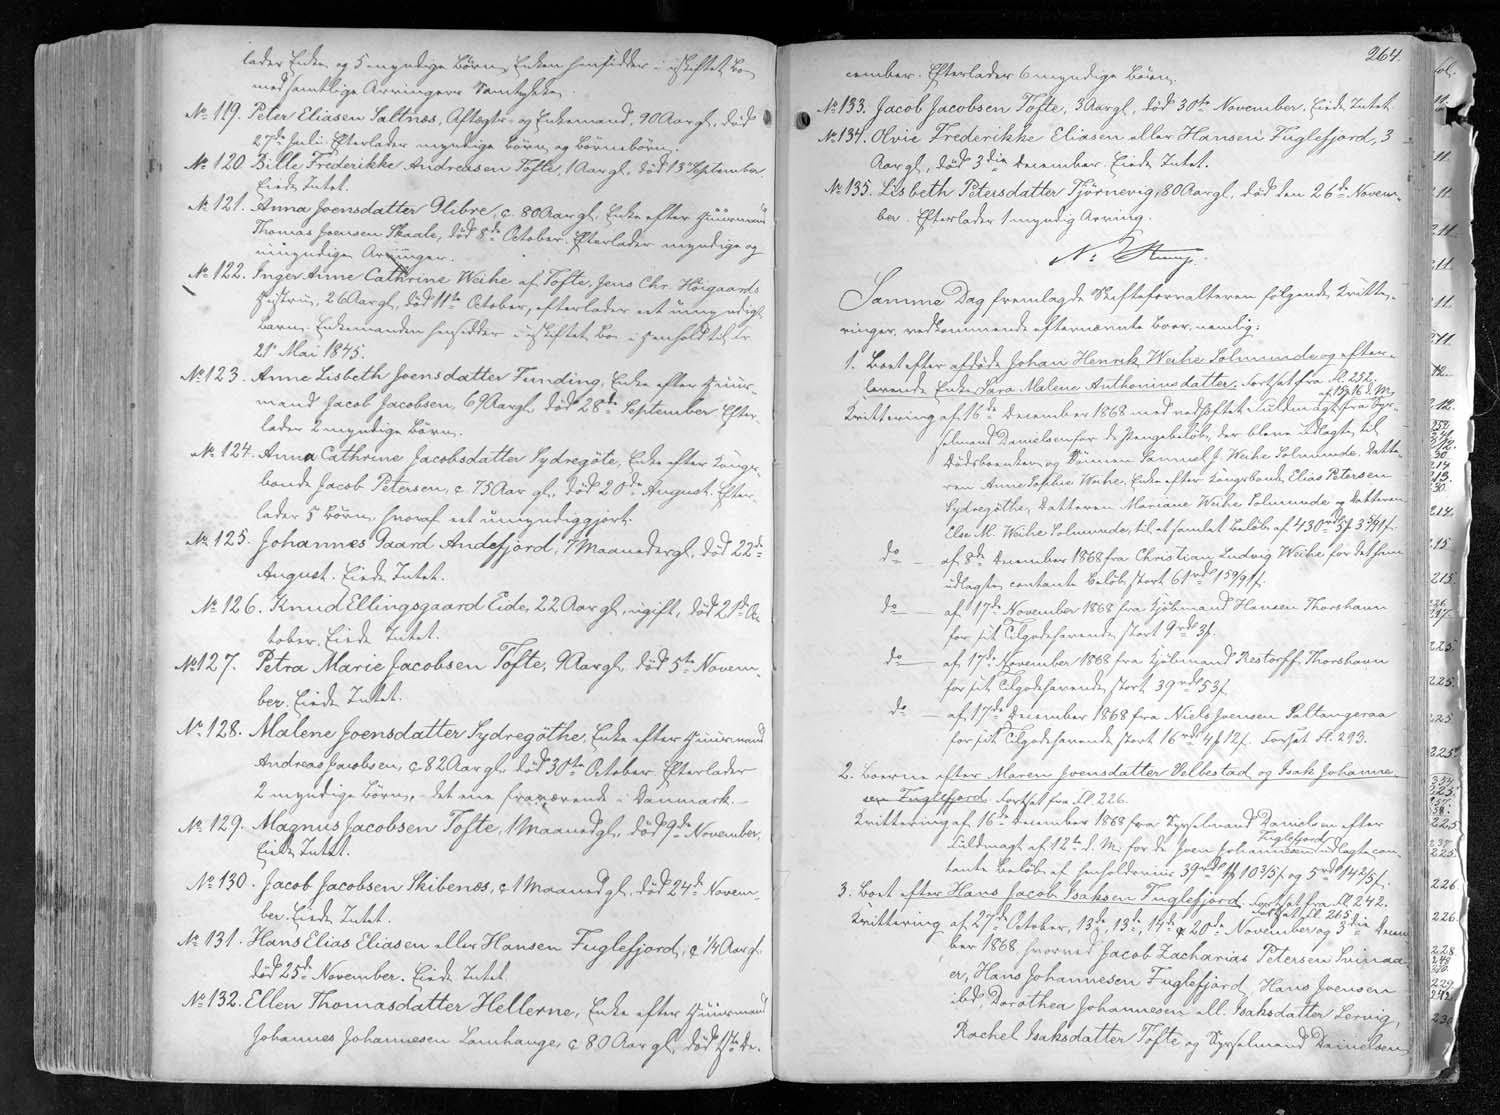 lader Enke og 5 myndige Børn, Enken hensidder i uskiftet Bo
med samtlige Arvingers Samtykke.
No 119. Peter Eliasen Saltnæs, Aftægts- og Enkemand, 90 Aar gl, død
27de Juli. Efterlader myndige Børn og Børnebørn.
No 120. Bille Frederikke Andreasen Tofte, 1 Aar gl. død 13de September.
Eiede Intet.
No 121. Anna Joensdatter Glibre, c. 80 Aar gl. Enke efter Huusmand
Thomas Joensen Skaale, død 8de October. Efterlader myndige og
umyndige Arvinger.
No 122. Inger Anne Cathrine Weihe af Tofte, Jens Chr. Höigaards
Hustru, 26 Aar gl, død 11te October, efterlader eet umyndigt
Barn. Enkemanden hensidder i uskiftet Bo i Henhold til Fr
21 Mai 1845.
No 123. Anne Lisbeth Joensdatter Funding, Enke efter Huus-
mand Jacob Jacobsen, 69 Aar gl. død 28de September Efter-
lader 2 myndige Børn.
No 124. Anna Cathrine Jacobsdatter Sydregöte, Enke efter Konge-
bonde Jacob Petersen, c 73 Aar gl. død 20de August. Efter-
lader 5 Børn, hvoraf eet umyndiggjort.
No 125. Johannes Gaard Andefjord, 7 Maaneder gl, død 22de
August. Eiede Intet.
No 126. Knud Ellingsgaard Eide, 22 Aar gl, ugift, død 21de Oc-
tober. Eiede Intet.
No 127. Petra Marie Jacobsen Tofte, 9 Aar gl. død 5te Novem-
ber. Eiede Intet.
No 128. Malene Joensdatter Sydregöthe, Enke efter Huusmand
Andreas Jacobsen, c 82 Aar gl, død 30te October. Efterlader
2 myndige Børn, - det ene fraværende i Danmark. -
No 129. Magnus Jacobsen Tofte, 1 Maaned gl, død 9de November,
Eiede Intet.
No 130. Jacob Jacobsen Skibenæs, c 1 Maaned gl, død 24de Novem-
ber. Eiede Intet.
No 131. Hans Elias Eliasen eller Hansen Fuglefjord, c 1/4 Aar gl.
død 25de November. Eiede Intet
No 132. Ellen Thomasdatter Hellerne, Enke efter Huusmand
Johannes Johannesen Lamhauge, c 80 Aar gl, død De-
264.
cember. Efterlader 6 myndige Børn.
No 133. Jacob Jacobsen Tofte, 3 Aar gl, død 30te November, Eiede Intet
No 134. Olvie Frederikke Eliasen eller Hansen Fuglefjord, 3
Aar gl, død 3die December. Eiede Intet.
No 135. Lisbeth Petersdatter Tjörnevig, 80 Aar gl, død den 26de Novem-
ber. Efterlader 1 myndig Arving.
Samme Dag fremlagde Skifteforvalteren følgende Kvitte-
ringer, vedkommende efternævnte Boer, nemlig:
1. Boet efter afdøde Johan Henrik Weihe Solmunde og efter-
levende Enke Sara Malene Anthoniusdatter. Fortsat fra Fl. 252.
af 15 og 16 d. M.
Kvittering af 16de December 1868 med vedhæftet Fuldmagt fra Sys-
selmand Danielsen for de Pengebeløb, der bleve udlagte til
Dødsboenken og Sønnen Samuel J. Weihe Solmunde, Datte-
ren Anne Sophie Weihe, Enke efter Kongsbonde Elias Petersen
Sydregöthe, Datteren Mariane Weihe Solmunde og Datteren
Else M. Weihe Solmunde, til et samlet Beløb af 430 rd
do — af 8de December 1868 fra Christian Ludvig Weihe for det ham
udlagte contante Beløb stort 61 rd
do — af 17de November 1868 fra Kjøbmand Hansen Thorshavn
for sit Tilgodehavende, stort 9 rd 3 ß.
do — af 17de November 1868 fra Kjøbmand Restorff, Thorshavn
for sit Tilgodehavende, stort 39 rd 53 ß.
do — af 17de December 1868 fra Niels Joensen Saltangeraa
for sit Tilgodehavende stort 16 rd Fortsat Fl. 293.
2. Boerne efter Maren Joensdatter Velbestad og Isak Johanne-
sen Fuglefjord. Fortsat fra Fl. 226.
Kvittering af 16de December 1868 fra Sysselmand Danielsen efter
Fuglefjord
Fuldmagt af 12te d. M. for de Joen Johannesen udlagte con-
tante Beløb af henholdsviis 39 rd og 5 rd
3. Boet efter Hans Jacob Isaksen Fuglefjord. Fortsat fra Fl 242.
Fortsat Fl. 265.
Kvittering af 27de October, 13de, 13de, 14de & 20de November og 3die Decem-
ber 1868 hvorved Jacob Zacharias Petersen Svinaa-
er, Hans Johannesen Fuglefjord, Hans Joensen
ibd, Dorothea Johannesen ell. Isaksdatter Lervig,
Rachel Isaksdatter Tofte og Sysselmand Danielsen